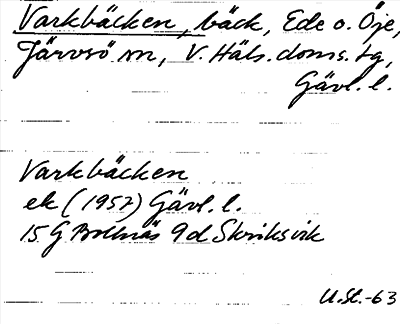 Varkbäcken, bäck, Ede o. Öje,
Järvsö sn, V. Häls. doms. tg,
Gävl. l.
Varkbäcken
ek (1957) Gävl. l.
15 G Bollnäs 9d Skriksvik
U.Sl.-63